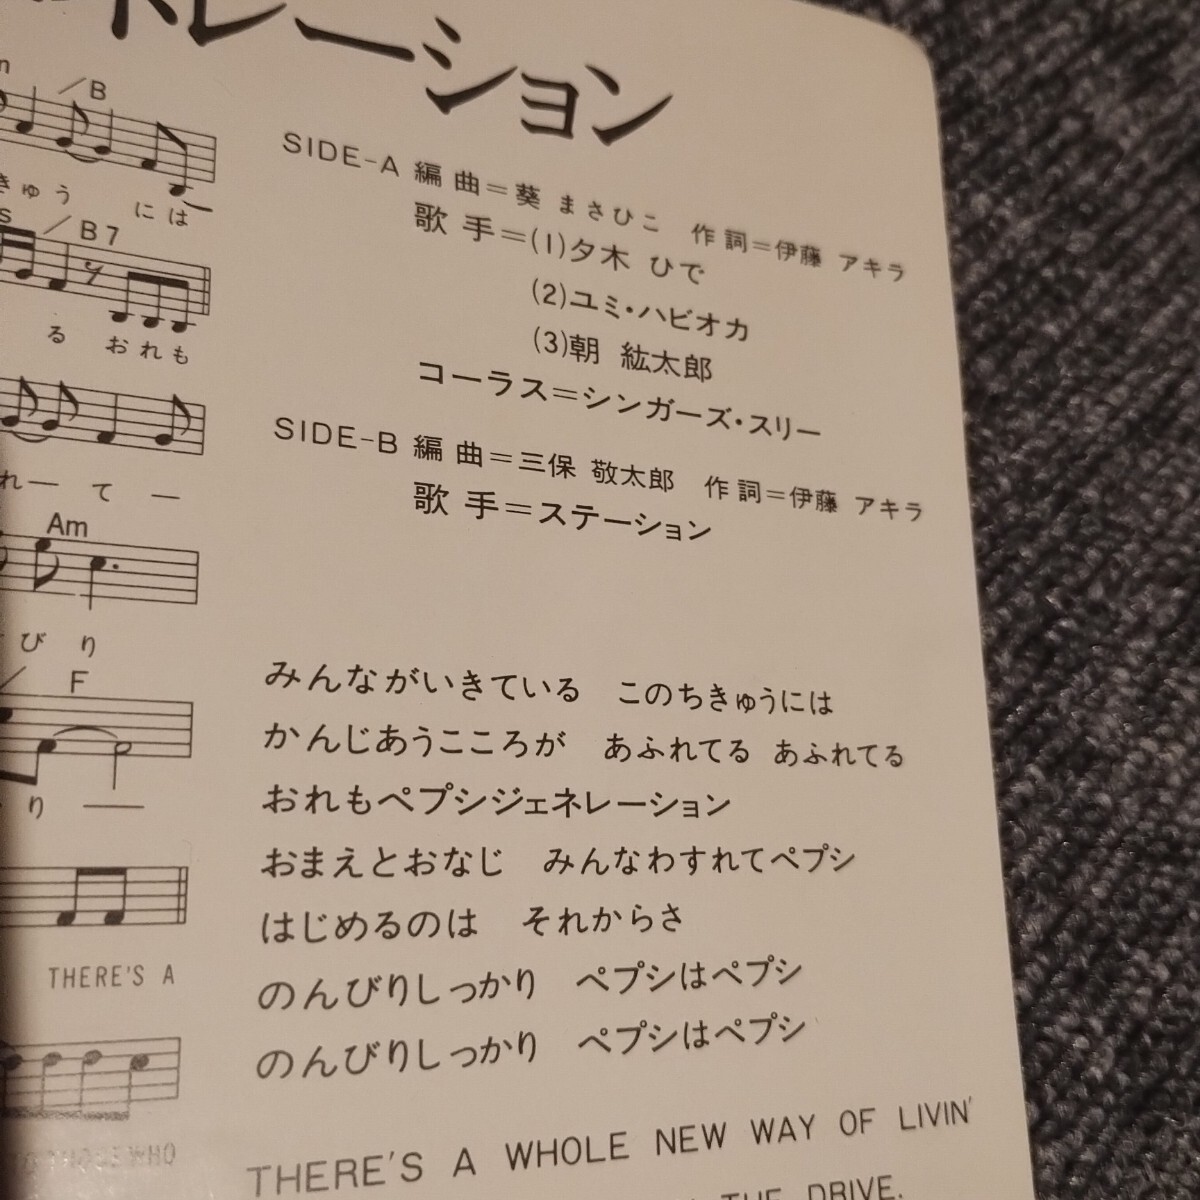 トレーション
／B
きゅう には
／B7
る おれも
れ— て —
Am
びり
／ F
り ——
THERE'S A
WHO
SIDE-A 編曲＝葵 まさひこ 作詞＝伊藤 アキラ
歌手＝(1)夕木 ひで
(2)ユミ・ハビオカ
(3)朝 紘太郎
コーラス＝シンガーズ・スリー
SIDE-B 編曲＝三保 敬太郎 作詞＝伊藤 アキラ
歌手＝ステーション
みんながいきている このちきゅうには
かんじあうこころが あふれてる あふれてる
おれもペプシジェネレーション
おまえとおなじ みんなわすれてペプシ
はじめるのは それからさ
のんびりしっかり ペプシはペプシ
のんびりしっかり ペプシはペプシ
THERE'S A WHOLE NEW WAY OF LIVIN'
THE DRIVE.